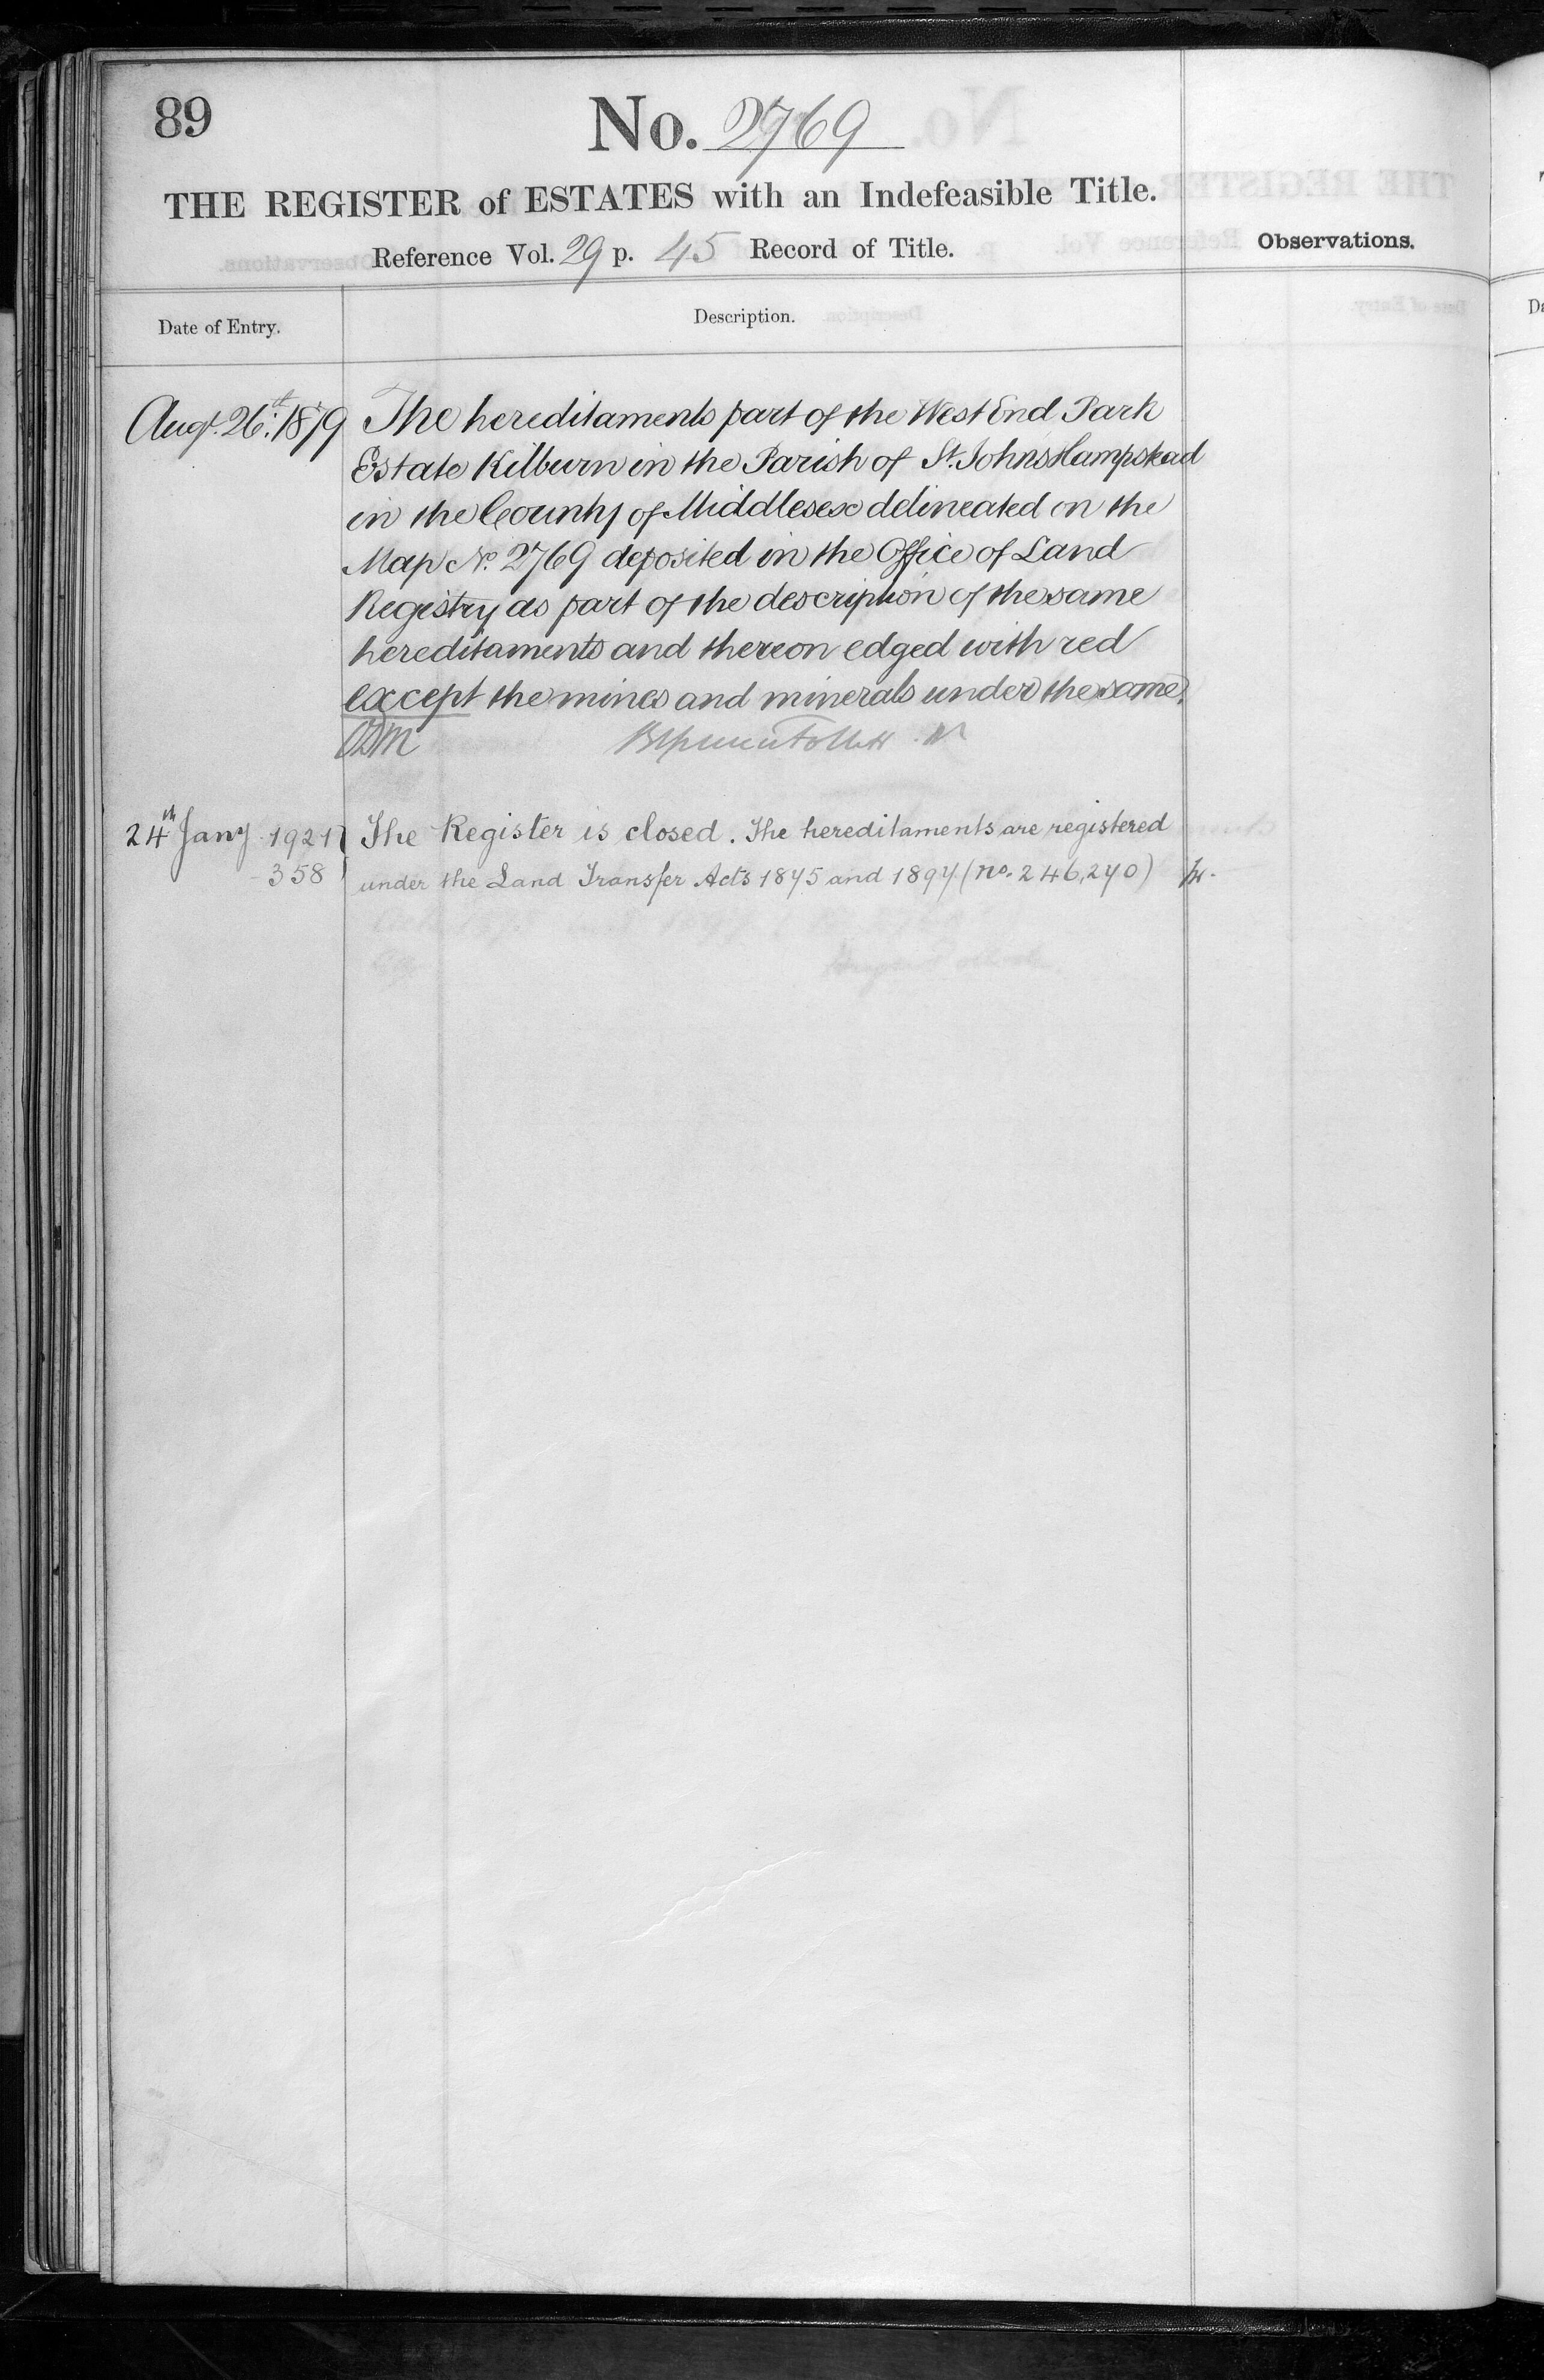 89
No. 2769
THE REGISTER of ESTATES with an Indefeasible Title.
Reference Vol. 29 p. 45 Record of Title.
Observations.
Date of Entry.
Description.
Augt. 26th: 1879 The hereditaments part of the West End Park
Estate Kilburn in the Parish of St. Johns Hampstead
in the County of Middlesex delineated on the
Map No. 2769 deposited in the Office of Land
Registry as part of the description of the same
hereditaments and thereon edged with red
except the mines and minerals under the same.
24th Jany 1921 The Register is closed. The hereditaments are registered
358 under the Land Transfer Acts 1875 and 1897 (No. 246,270)